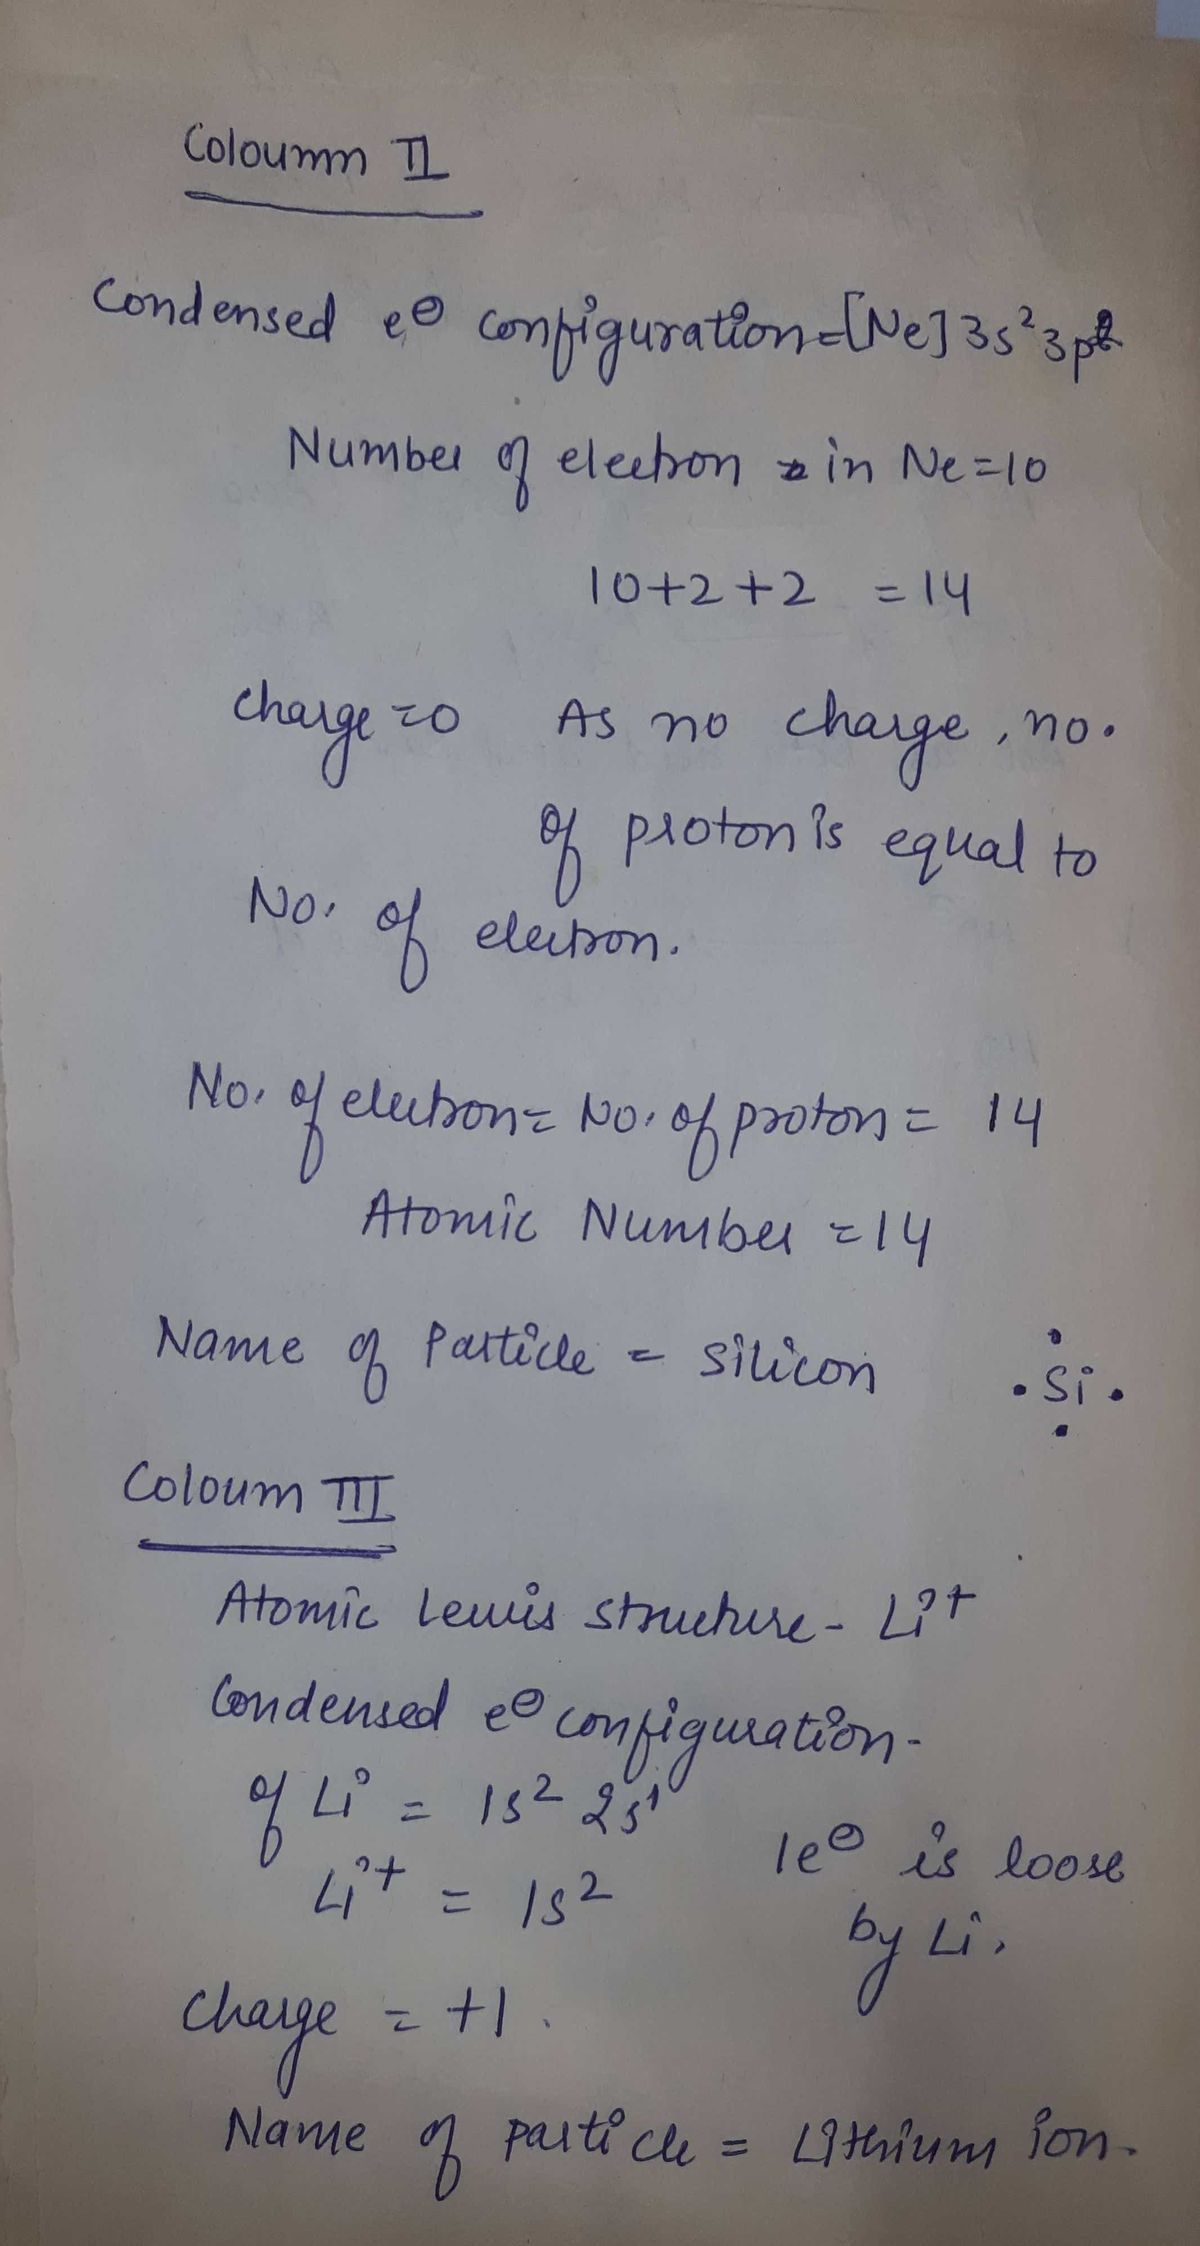 Coloumn II
Condensed e⊖ configuration=[Ne] 3s² 3p²
Number of electron in Ne=10
10+2+2 =14
Charge=0 As no charge, no.
of proton is equal to
No. of electron.
No. of electron= No. of proton= 14
Atomic Number =14
Name of Particle = Silicon ·Si·
Coloum III
Atomic Lewis structure- Li+
Condensed e⊖ configuration-
of Li = 1s² 2s¹
Li+ = 1s² 1e⊖ is loose
by Li.
Charge = +1.
Name of particle = Lithium ion.